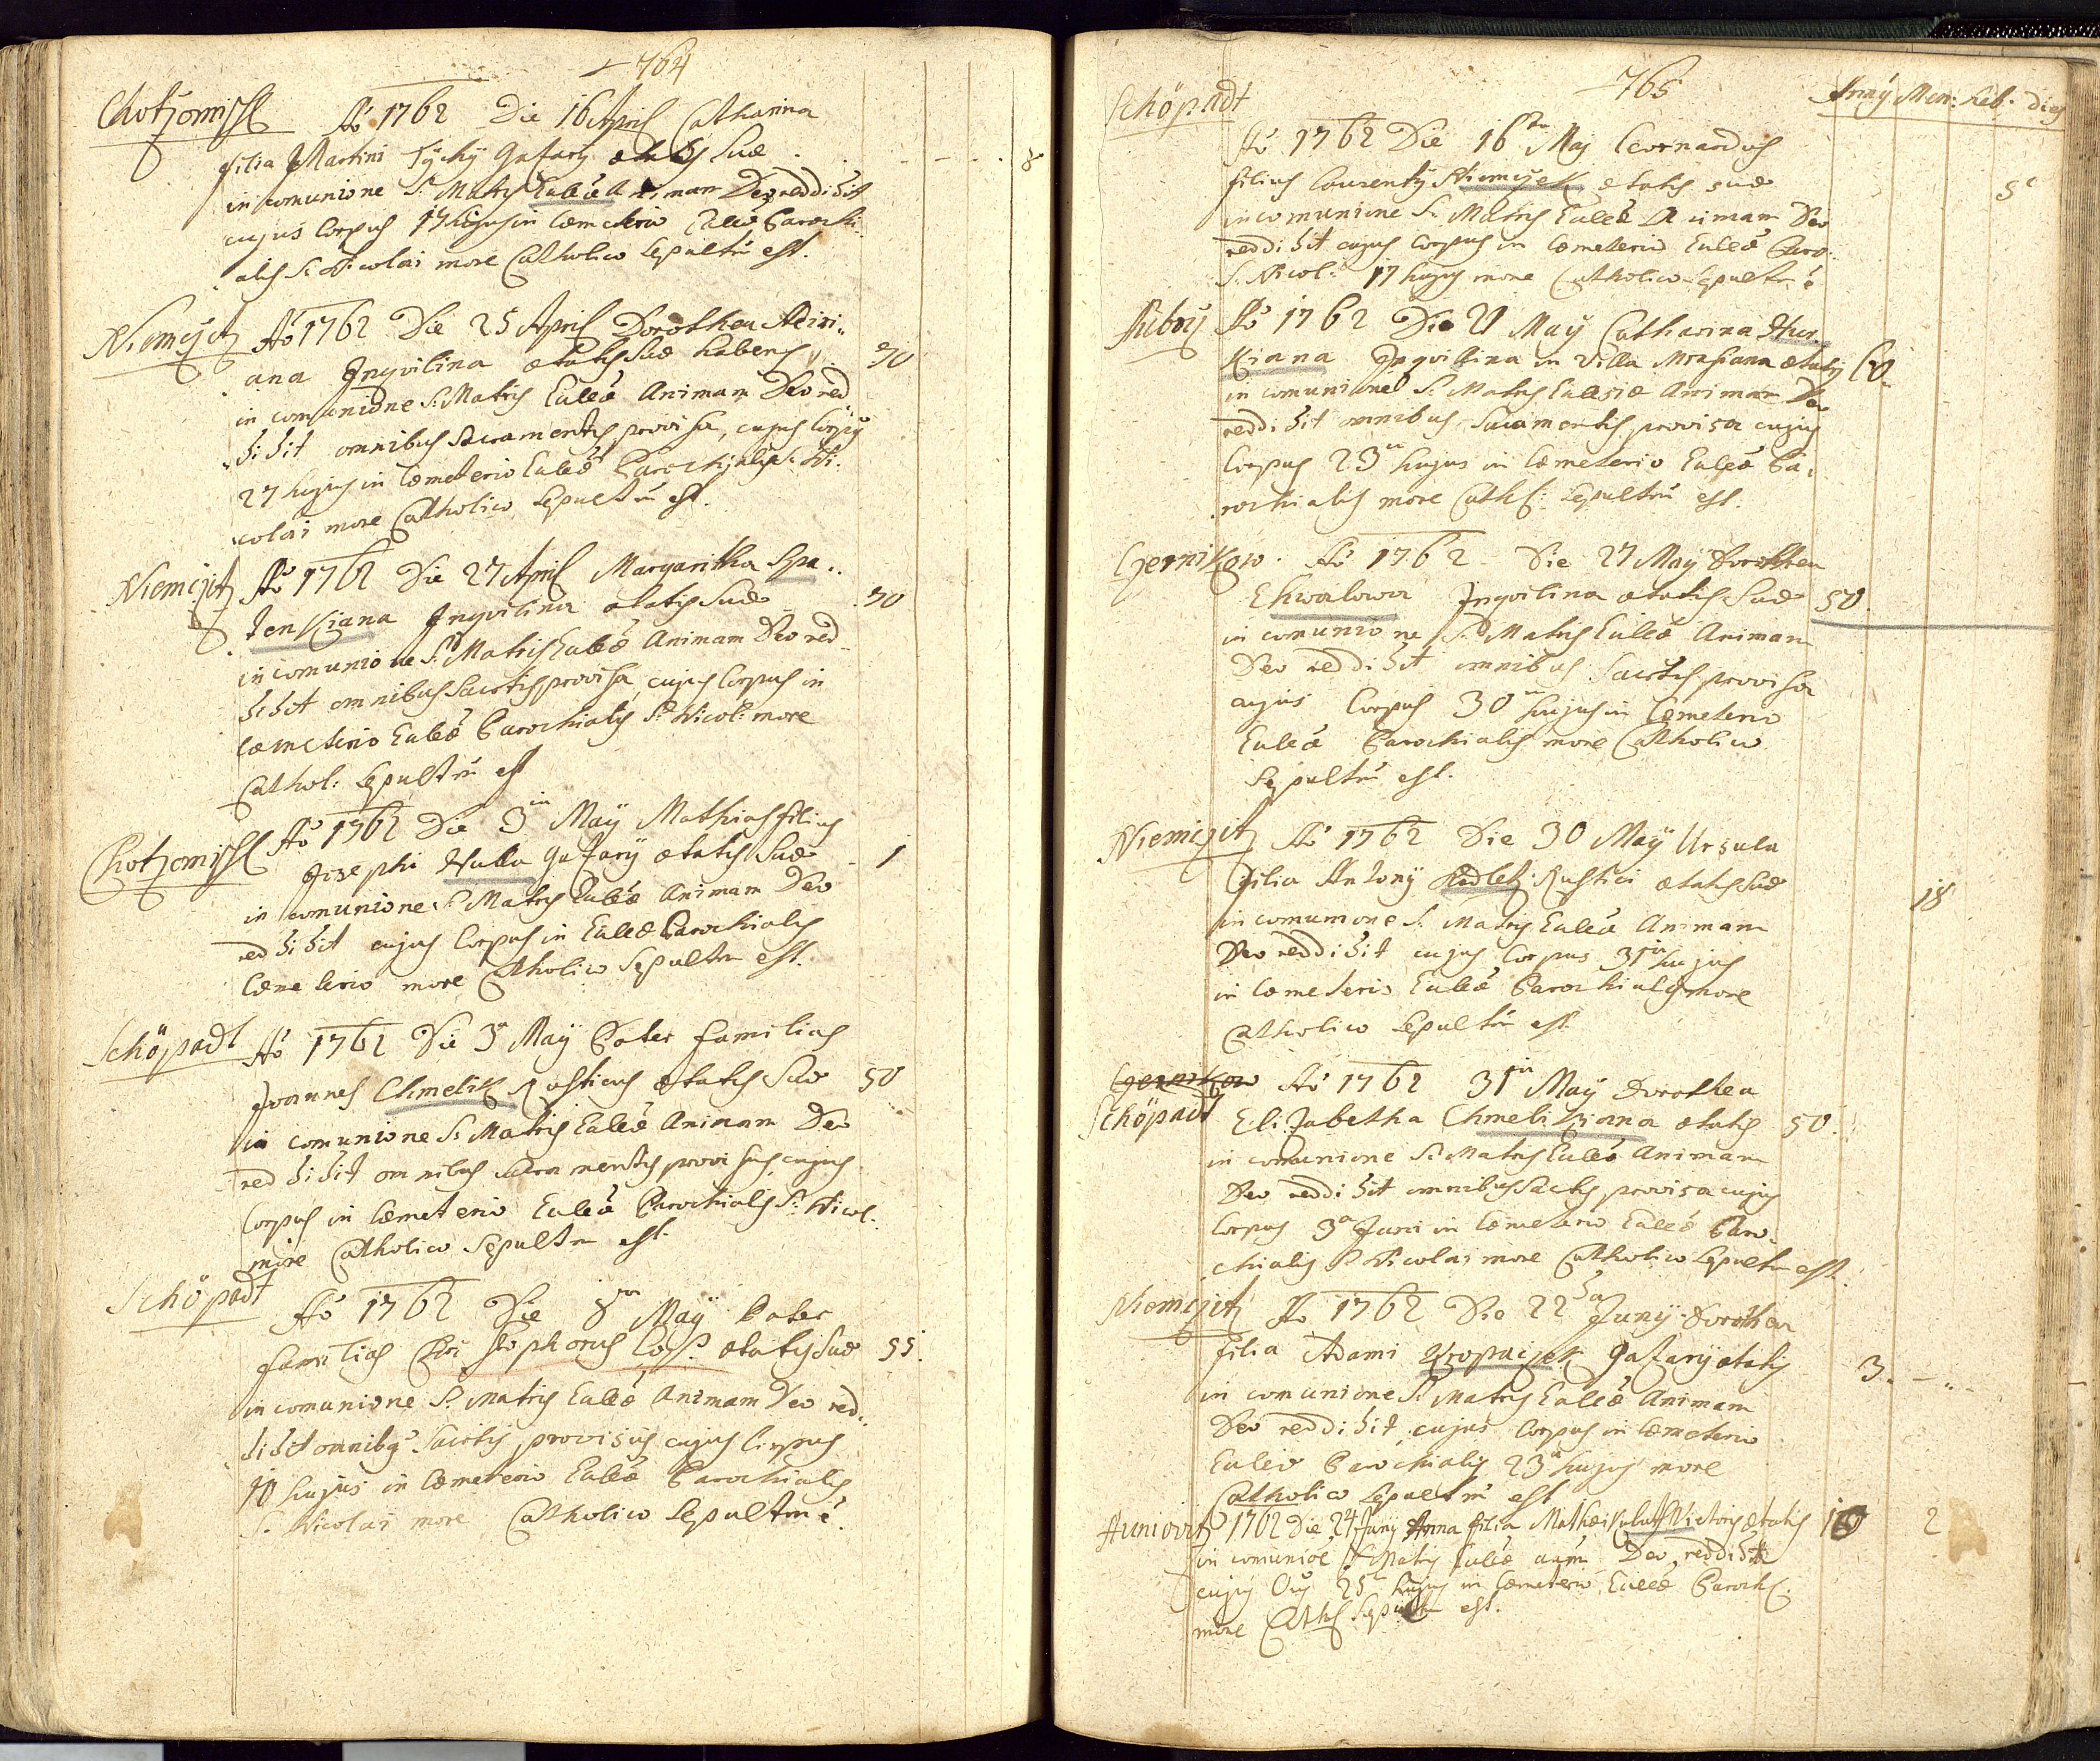 764
Chotzomischl Aõ 1762 Die 16 April Catharina
filia Martini Tychÿ Gazarÿ ætatis suæ 8
in comunione S. Matris Eulɶ Animam Deo reddidit
cujus Corpus 17 hujus in Cœmeterio Eulɶ Parochi
alis S. Nicolai more Catholico Sepultũ est.
Niemcʒitz Aõ 1762 Die 25 April Dorothea
ana Inquilina ætatis suæ habens 70
in comunione S. Matris Eulɶ Animam Deo red
didit omnibus Sacramentis provisa, cujus Corpus
27 hujus in Cœmeterio Eulɶ Parochialis S. Ni
colai more Catholico Sepultũ est.
Niemcʒitz Aõ 1762 Die 27 April Margaritha Spa..
tenkiana Inquilina ætatis suæ 70
in comunione S. Matris Eulɶ Animam Deo red
didit omnibus Sacrtis provisa, cujus Corpus in
Cœmeterio Eulɶ Parochialis S. Nicol: more
Cathol: Sepultũ est
Chotzomischl Aõ 1762 Die 3 May Mathias filius
Josephi Hulla Gazarÿ ætatis suæ 1
in comunione S. Matris Eulɶ Animam Deo
reddidit cujus Corpus in Eulɶ Parochialis
Cœmeterio more Catholico Sepultũ est.
Schöpadl Aõ 1762 Die 3a May Pater familias
Joannes Chmelik Rusticus ætatis suæ 50
in comunione S. Matris Eulɶ Animam Deo
reddidit omnibus Sacramentis provisus, cujus
Corpus in Cœmeterio Eulɶ Parochialis S. Nicol.
more Catholico Sepultũ est.
Schöpadl Aõ 1762 Die 8va May Pater
familias Christophorus ætatis suæ 55.
in comunione S. Matris Eulɶ Animam Deo red:
didit omnibq Sacrtis provisus cujus Corpus
10 hujus in Cœmeterio Eulɶ Parochialis
S. Nicolai more Catholico Sepultũ ẽ.
765
Anny Men: heb. dies
Schöpadl
Aõ 1762 Die 16ta Maj Leonardus
filius Laurentÿ ætatis suæ
in comunione S. Matris Eulɶ Animam Deo
reddidit cujus Corpus in Cœmeterio Eulɶ Paro
S. Nicol: 17 hujus more Catholico Sepultũ ẽ
Aõ 1762 Die 21 May Catharina
kiana Inquilina in Villa ætatis 60
in comunione S. Matris Eulesiæ Animam Deo
reddidit omnibus Sacramentis provisa cujus
Corpus 23 hujus in Cœmeterio Eulɶ Pa
rochialis more Cath: Sepultũ est.
Czernikow. Aõ 1762 Die 27 May Dorothea
Ekwalowa Inquilina ætatis suæ 50
in comunione S. Matris Eulɶ Animam
Deo reddidit omnibus Sacrtis provisa
cujus Corpus 30 hujus in Cœmeterio
Eulɶ Parochialis more Catholico
Sepultũ est.
Niemcʒitz Aõ 1762 Die 30 May Ursula
filia Antonÿ Rustici ætatis suæ 18
in comunione S. Matris Eulɶ Animam
Deo reddidit cujus Corpus 31 hujus
in Cœmeterio Eulɶ Parochialis more
Catholico Sepultũ est.
Czernikow Aõ 1762 31 May Dorothea
Schöpadl Elizabetha Chmelikiana ætatis 50.
in comunione S. Matris Eulɶ Animam
Deo reddidit omnibus Sactis provisa cujus
Corpus 3a Juni in Cœmeterio Eulɶ Paro
chialis S. Nicolai more Catholico Sepultũ est.
Niemcʒitz Aõ 1762 Die 22da Junÿ Dorothea
filia Adami Kropaczek Gazarÿ ætatis 3.
in comunione S. Matris Eulɶ Animam
Deo reddidit cujus Corpus in Cœmeterio
Eulɶ Parochialis 23a hujus more
Catholico Sepultũ est
Huniovitz 1762 Die 24 Junÿ Anna filia Mathæi ætatis 2
in comuniõe S. Matris Eulɶ aãm Deo reddidit
cujus 25 hujus in Cœmeterio Eulɶ Paroch.
more Cath Sepultũ est.